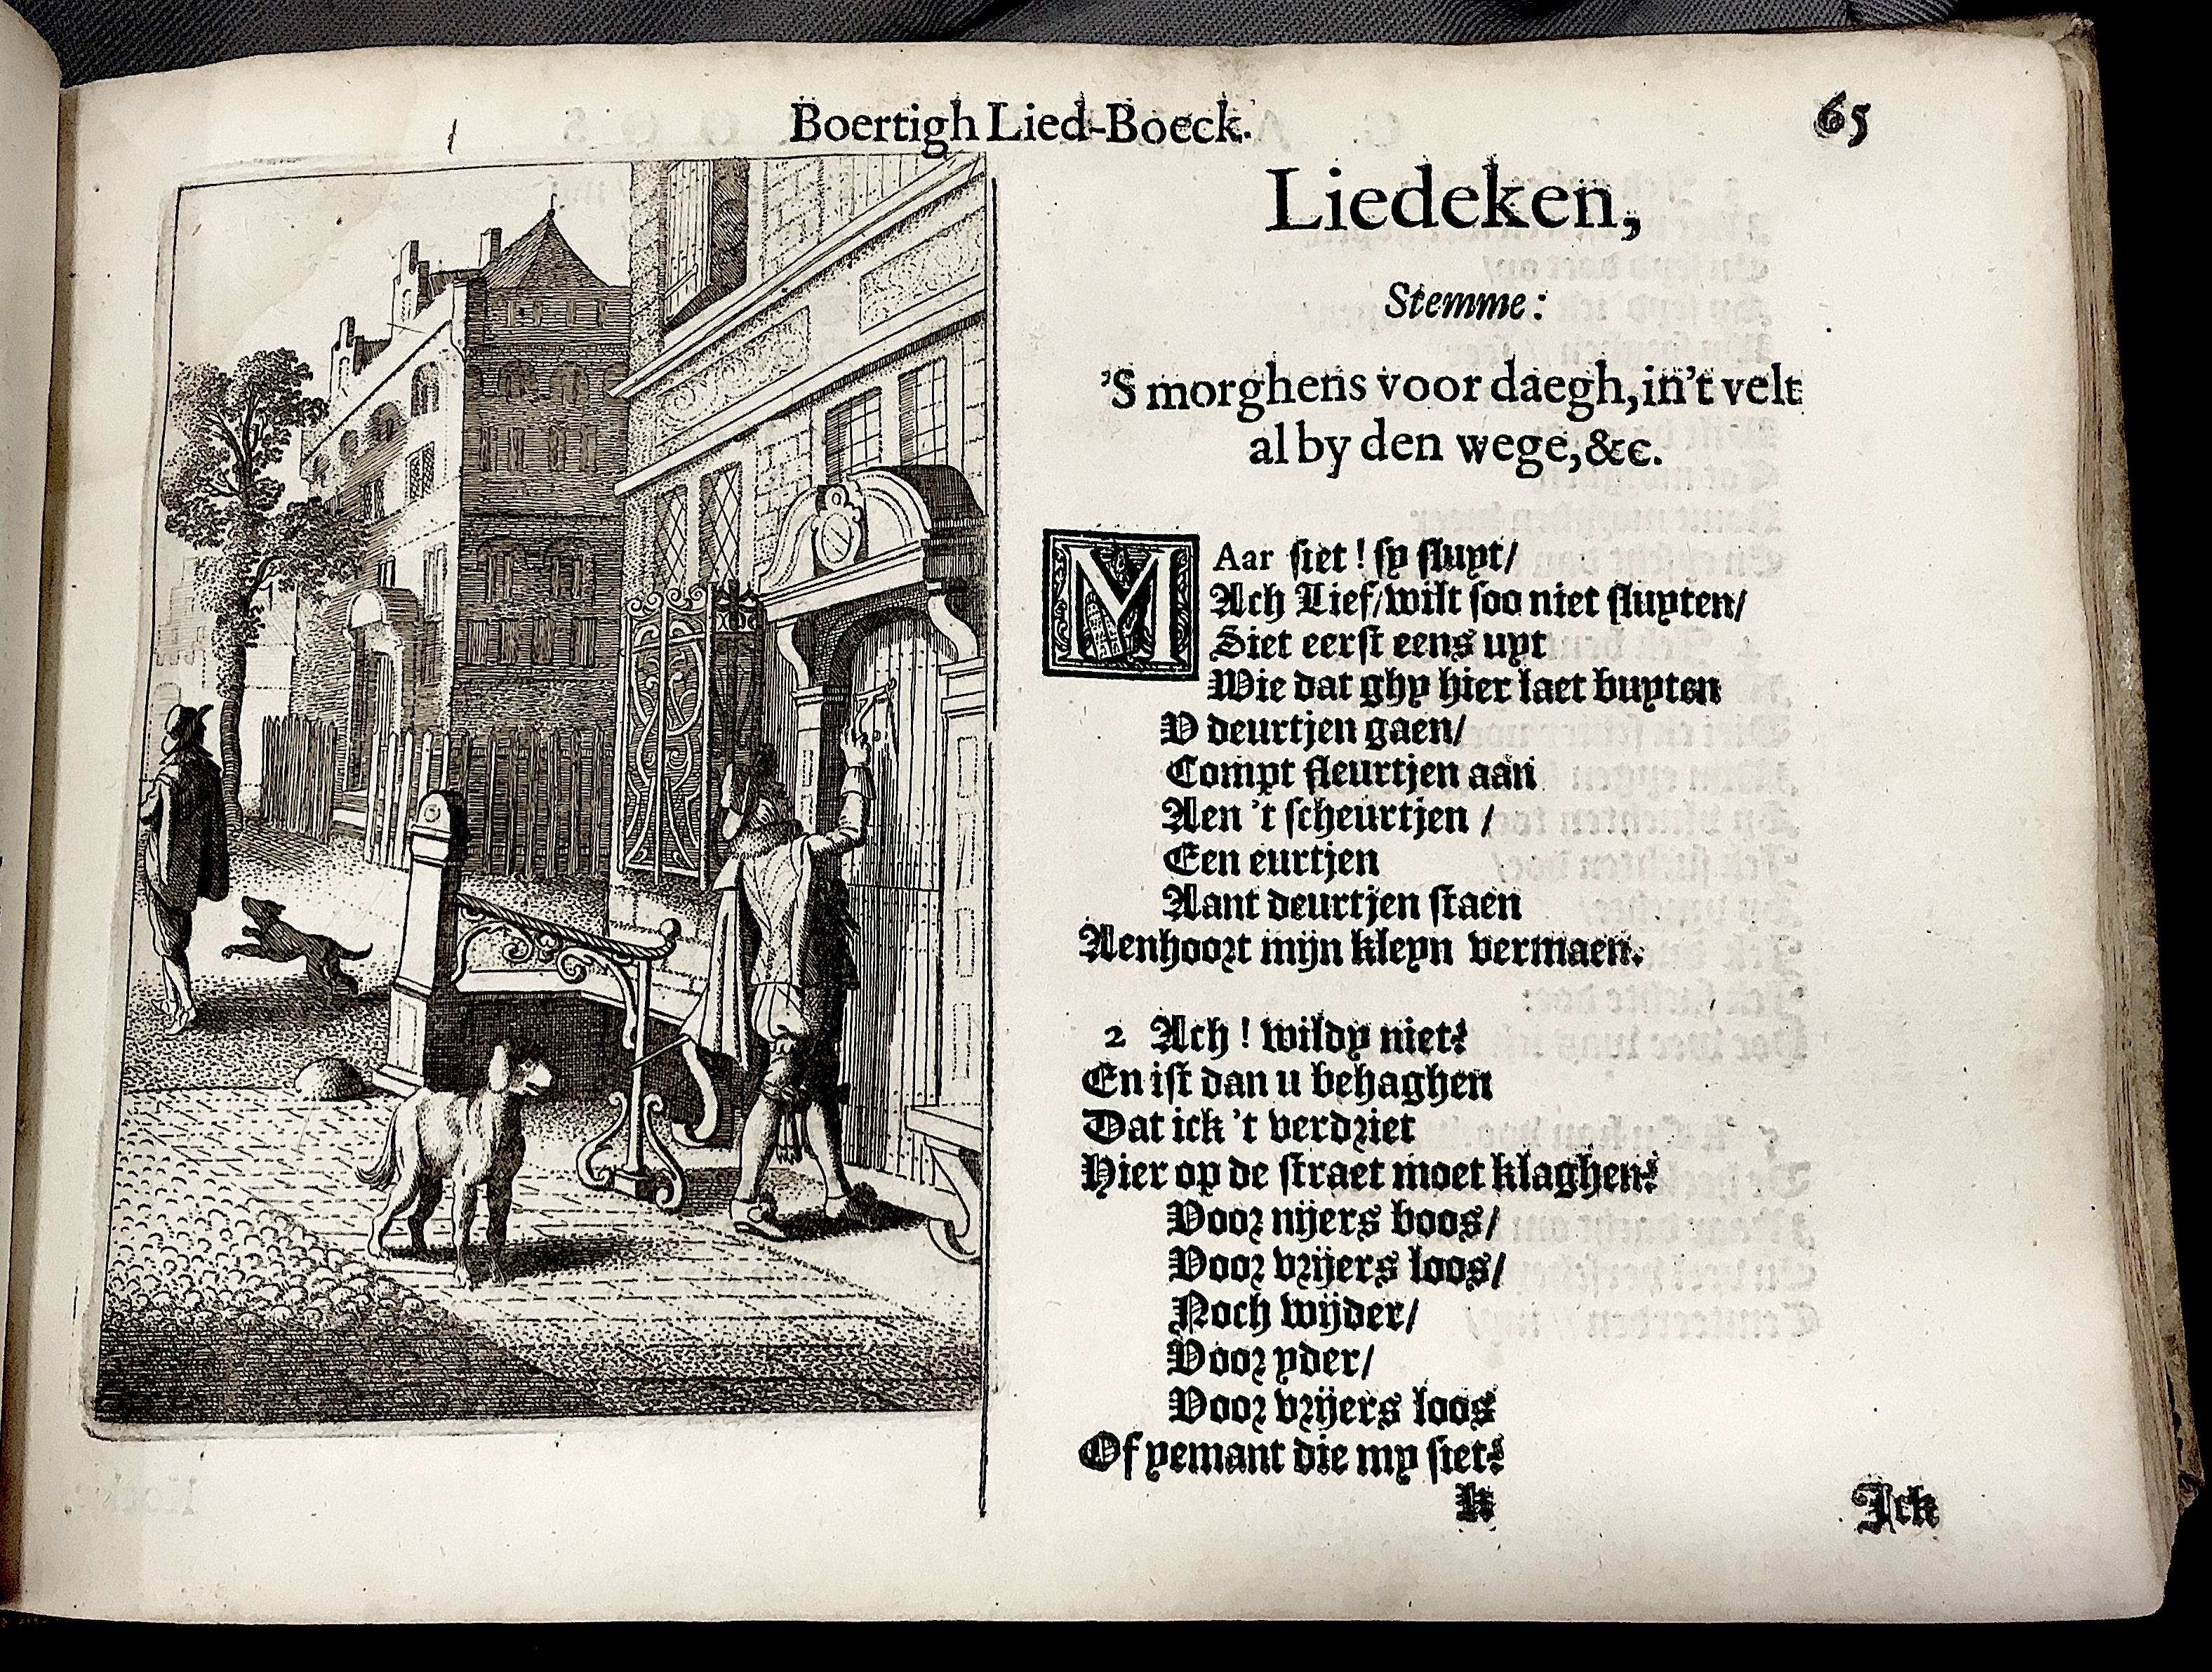 Boertigh Lied-Boeck.
65
Liedeken,
Stemme:
'S morghens voor daegh, in't velt
al by den wege, &c.
MAar siet! sy sluyt/
Ach Lief/wilt soo niet sluyten/
Siet eerst eens uyt
Wie dat ghy hier laet buyten
V deurtjen gaen/
Compt fleurtjen aan
Aen 't scheurtjen /
Een eurtjen
Aant deurtjen staen
Aenhoort mijn kleyn vermaen.
2 Ach! wildy niet?
En ist dan u behaghen
Dat ick 't verdriet
Hier op de straet moet klaghen?
Voor nijers boos/
Voor vrijers loos/
Noch wijder/
Voor yder/
Voor vrijers loos
Of yemant die my siet?
K
Ick